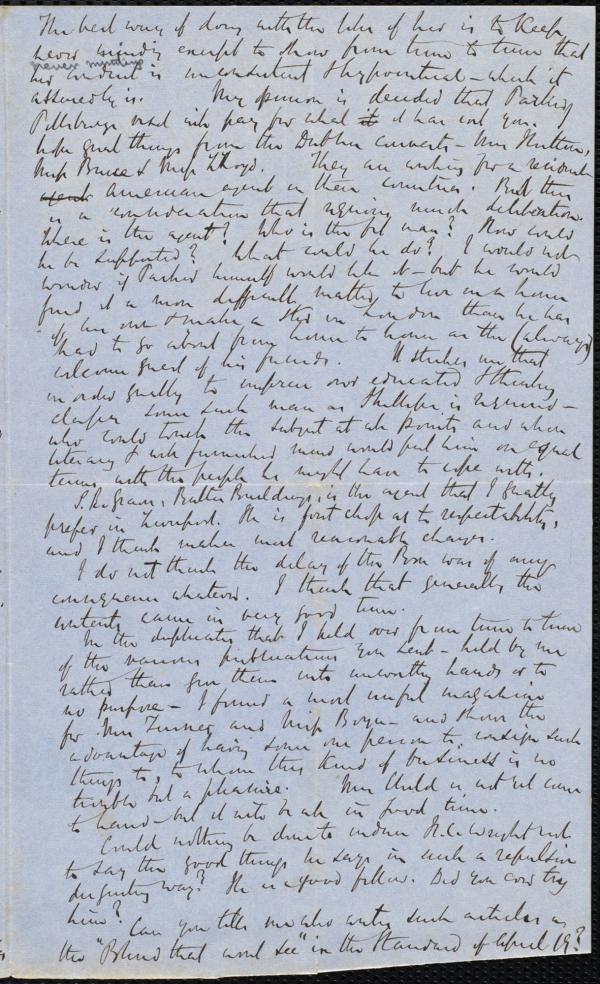 The best way of doing with the likes of her is to keep
never minding except to show from time to time that
never minding
her conduct is inconsistent & hypocritical - which it
assuredly is. My opinion is decided that Parker
Pillsbury's visit will pay for what it has cost you. I
hope great things from the Dublin converts - Mrs Hutton,
Miss Bruce & Miss Lloyd. They are writing for a resident
American agent in these countries. But this
is a consideration that requires much deliberation.
Where is the agent? Who is the fit man? How could
he be supported? What could he do? I would not
wonder if Parker himself would like it - but he would
find it a more difficult matter to live in a home
of his own & make a stir in London than he has
had to go about from home to home as the (always)
welcome guest of his friends. It strikes me that
in order greatly to impress our educated & wealthy
classes some such man as Phillips is required -
who could touch the subject at all points and whose
literary & well furnished mind would put him on equal
terms with the people he might have to cope with.
Buildings, is the agent that I greatly
prefer in Liverpool. He is first chop as to respectability,
and I think makes most reasonable charges.
I do not think the delay of the Box was of any
consequence whatever. I think that generally the
contents came in very good time.
In the duplicates that I held over from time to time
of the various publications you sent - held by me
rather than give them into unworthy hands or to
no purpose - I found a most useful magazine
for Mrs Turner and Miss - and shows the
advantage of having some one person to consign such
things to, to whom this kind of business is no
trouble but a pleasure. Mrs Child is not yet come
to hand - but it will be all in good time.
Could nothing be done to induce H. C. Wright not
to say the good things he says in such a repulsive
disgusting way? He is a good fellow. Did you ever try
him?
Can you tell me who writes such articles as
the "Blind that wont see" in the Standard of April 19?